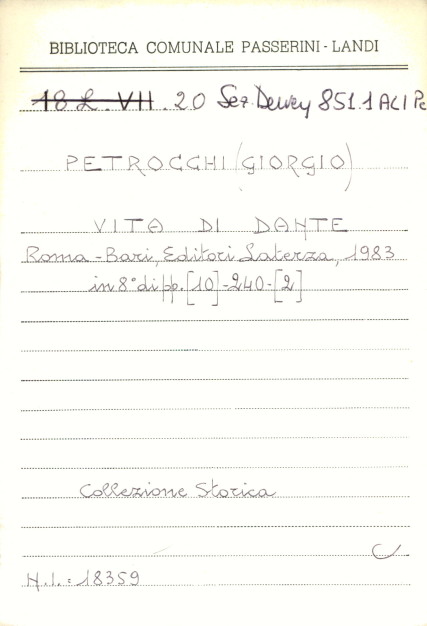 BIBLIOTECA COMUNALE PASSERINI - LANDI
18 L. VII. 20 Sez. Dewey 851.1 ALI Pe
PETROCCHI (GIORGIO)
VITA DI DANTE
Roma - Bari, Editori Laterza, 1983
in 8° di pp. [10]-240-[2]
Collezione Storica
C
N.I.: 18359